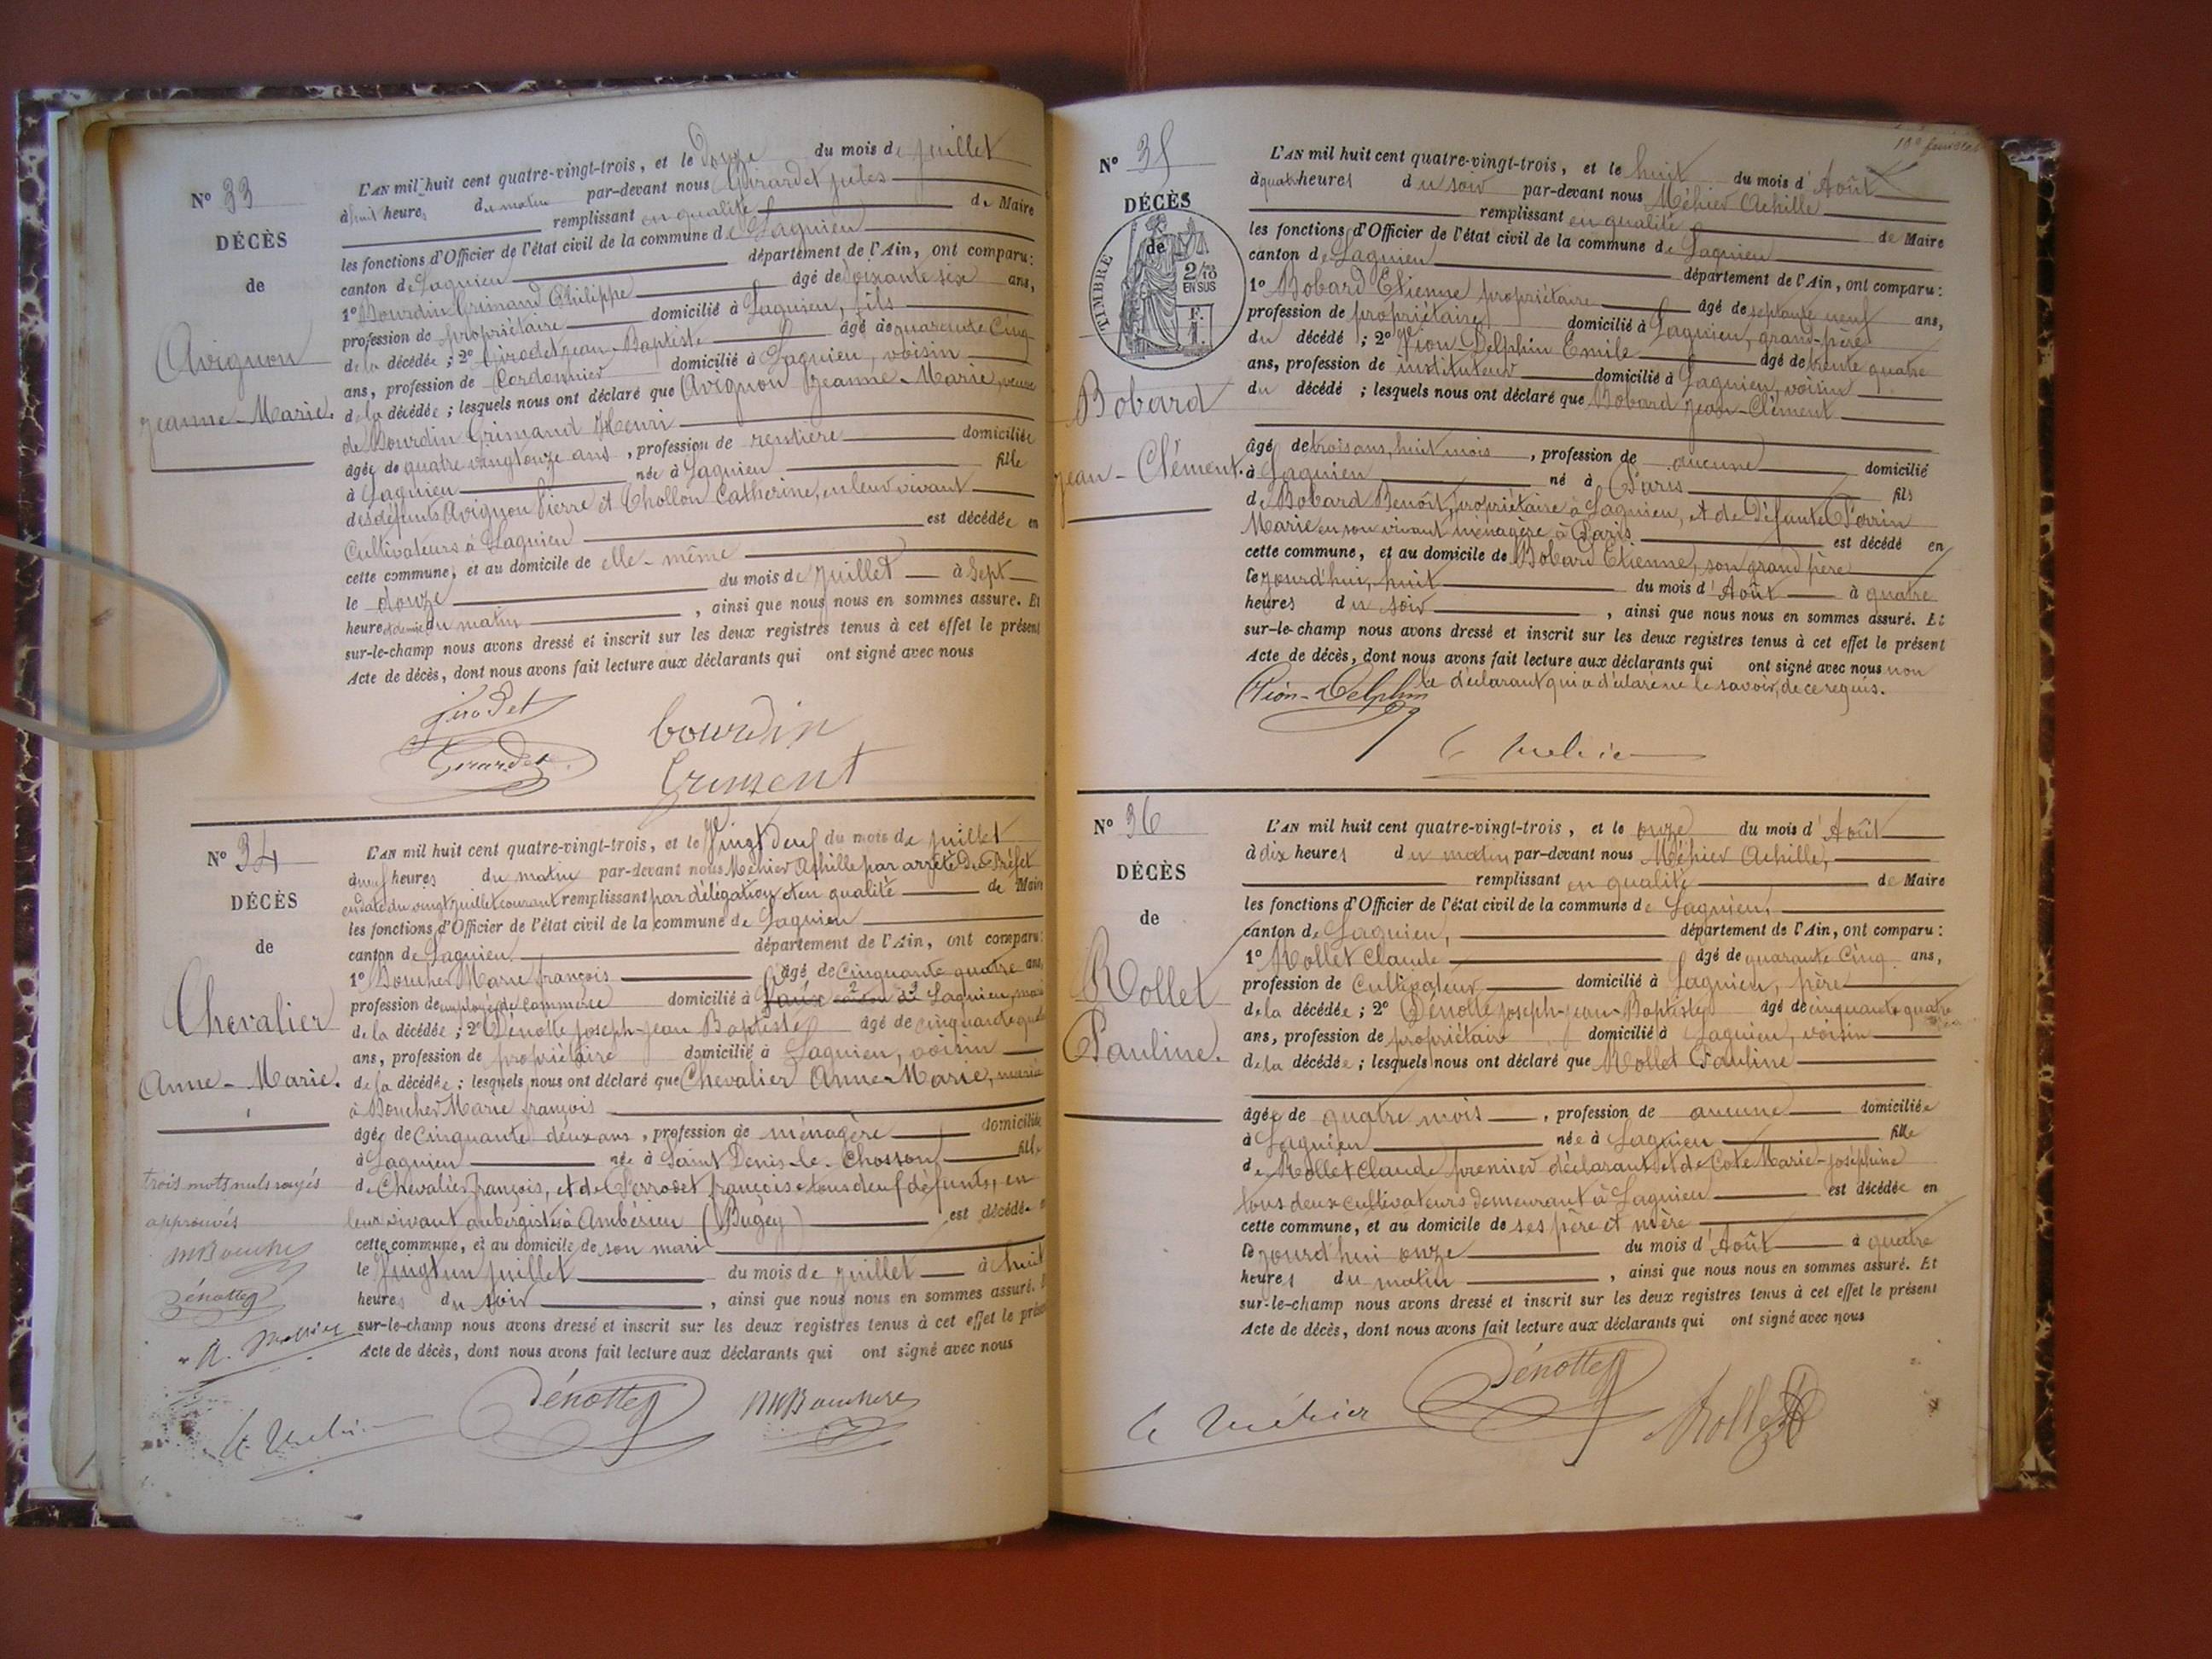 N° 33
DÉCÈS
de
Avignon
Jeanne-Marie.
L'AN mil huit cent quatre-vingt-trois, et le Douze du mois de juillet
à huit heures du matin par-devant nous Girardet jules
remplissant en qualité de Maire
les fonctions d'Officier de l'état civil de la commune de Lagnieu
canton de Lagnieu département de l'Ain, ont comparu:
1° Bourdin Grimand Philippe âgé de soixante six ans,
profession de propriétaire domicilié à Lagnieu, fils
de la décédée; 2° Girodet jean-Baptiste âgé de quarante Cinq
ans, profession de Cordonnier domicilié à Lagnieu, voisin
de la décédée; lesquels nous ont déclaré que Avignon Jeanne-Marie, veuve
de Bourdin Grimand Henri
âgée de quatre vingt onze ans, profession de rentière domiciliée
à Lagnieu née à Lagnieu fille
des défunts Avignon Pierre et Chollon Catherine, en leur vivant
Cultivateurs à Lagnieu est décédée en
cette commune, et au domicile de elle-même
le douze du mois de juillet à Sept
heures et demie du matin, ainsi que nous nous en sommes assuré. Et
sur-le-champ nous avons dressé et inscrit sur les deux registres tenus à cet effet le présent
Acte de décès, dont nous avons fait lecture aux déclarants qui ont signé avec nous
Girodet
bourdin
Girardet
Griment
N° 34
DÉCÈS
de
Chevalier
Anne-Marie.
trois mots nuls rayés
approuvés
MBouche
Dénotte
A. Mehier
L'AN mil huit cent quatre-vingt-trois, et le Vingt deux du mois de juillet
à neuf heures du matin par-devant nous Méhier Achille par arrêté du Préfet
en date du vingt juillet courant remplissant par délégation et en qualité de Maire
les fonctions d'Officier de l'état civil de la commune de Lagnieu
canton de Lagnieu département de l'Ain, ont comparu:
1° Boucher Marie françois âgé de Cinquante quatre ans,
profession de employé de commerce domicilié à Lagnieu, mari
de la décédée; 2° Dénotte Joseph-jean Baptiste âgé de cinquante quatre
ans, profession de propriétaire domicilié à Lagnieu, voisin
de la décédée; lesquels nous ont déclaré que Chevalier Anne-Marie, mariée
à Boucher Marie françois
âgée de Cinquante deux ans, profession de ménagère domiciliée
à Lagnieu née à Saint Denis-le-Chosson fille
de Chevalier françois, et de Perrodet françoise tous deux défunts, en
leur vivant aubergistes à Ambérieu (Bugey) est décédée en
cette commune, et au domicile de son mari
le Vingt un juillet du mois de juillet à huit
heures du soir, ainsi que nous nous en sommes assuré. Et
sur-le-champ nous avons dressé et inscrit sur les deux registres tenus à cet effet le présent
Acte de décès, dont nous avons fait lecture aux déclarants qui ont signé avec nous
Dénotte
MBouchere
N° 35
DÉCÈS
de
TIMBRE
2/10
EN SUS
Bobard
Jean-Clément.
L'AN mil huit cent quatre-vingt-trois, et le huit du mois d'Août
à quatre heures du soir par-devant nous Méhier Achille
remplissant en qualité de Maire
les fonctions d'Officier de l'état civil de la commune de Lagnieu
canton de Lagnieu département de l'Ain, ont comparu:
1° Bobard Etienne propriétaire âgé de septante neuf ans,
profession de propriétaire domicilié à Lagnieu, grand-père
du décédé; 2° Pion-Delphin Emile âgé de trente quatre
ans, profession de instituteur domicilié à Lagnieu, voisin
du décédé; lesquels nous ont déclaré que Bobard Jean-Clément
âgé de trois ans, huit mois, profession de aucune domicilié
à Lagnieu né à Paris fils
de Bobard Benoît, propriétaire à Lagnieu, et de Défunte Perrin
Marie en son vivant ménagère à Paris est décédé en
cette commune, et au domicile de Bobard Etienne, son grand père
le jourd'hui, huit du mois d'Août à quatre
heures du soir, ainsi que nous nous en sommes assuré. Et
sur-le-champ nous avons dressé et inscrit sur les deux registres tenus à cet effet le présent
Acte de décès, dont nous avons fait lecture aux déclarants qui ont signé avec nous non
le déclarant qui a déclaré ne le savoir, de ce requis.
Pion-Delphin
N° 36
DÉCÈS
de
Rollet
Pauline.
L'AN mil huit cent quatre-vingt-trois, et le onze du mois d'Août
à dix heures du matin par-devant nous Méhier Achille,
remplissant en qualité de Maire
les fonctions d'Officier de l'état civil de la commune de Lagnieu,
canton de Lagnieu, département de l'Ain, ont comparu:
1° Rollet Claude âgé de quarante Cinq ans,
profession de Cultivateur domicilié à Lagnieu, père
de la décédée; 2° Dénotte joseph-jean-Baptiste âgé de cinquante quatre
ans, profession de propriétaire domicilié à Lagnieu, voisin
de la décédée; lesquels nous ont déclaré que Rollet Pauline
âgée de quatre mois, profession de aucune domiciliée
à Lagnieu née à Lagnieu fille
de Rollet Claude premier déclarant et de Cote Marie-joséphine
tous deux cultivateurs demeurant à Lagnieu est décédée en
cette commune, et au domicile de ses père et mère
le jourd'hui onze du mois d'Août à quatre
heures du matin, ainsi que nous nous en sommes assuré. Et
sur-le-champ nous avons dressé et inscrit sur les deux registres tenus à cet effet le présent
Acte de décès, dont nous avons fait lecture aux déclarants qui ont signé avec nous
Dénotte
Méhier
Rollet